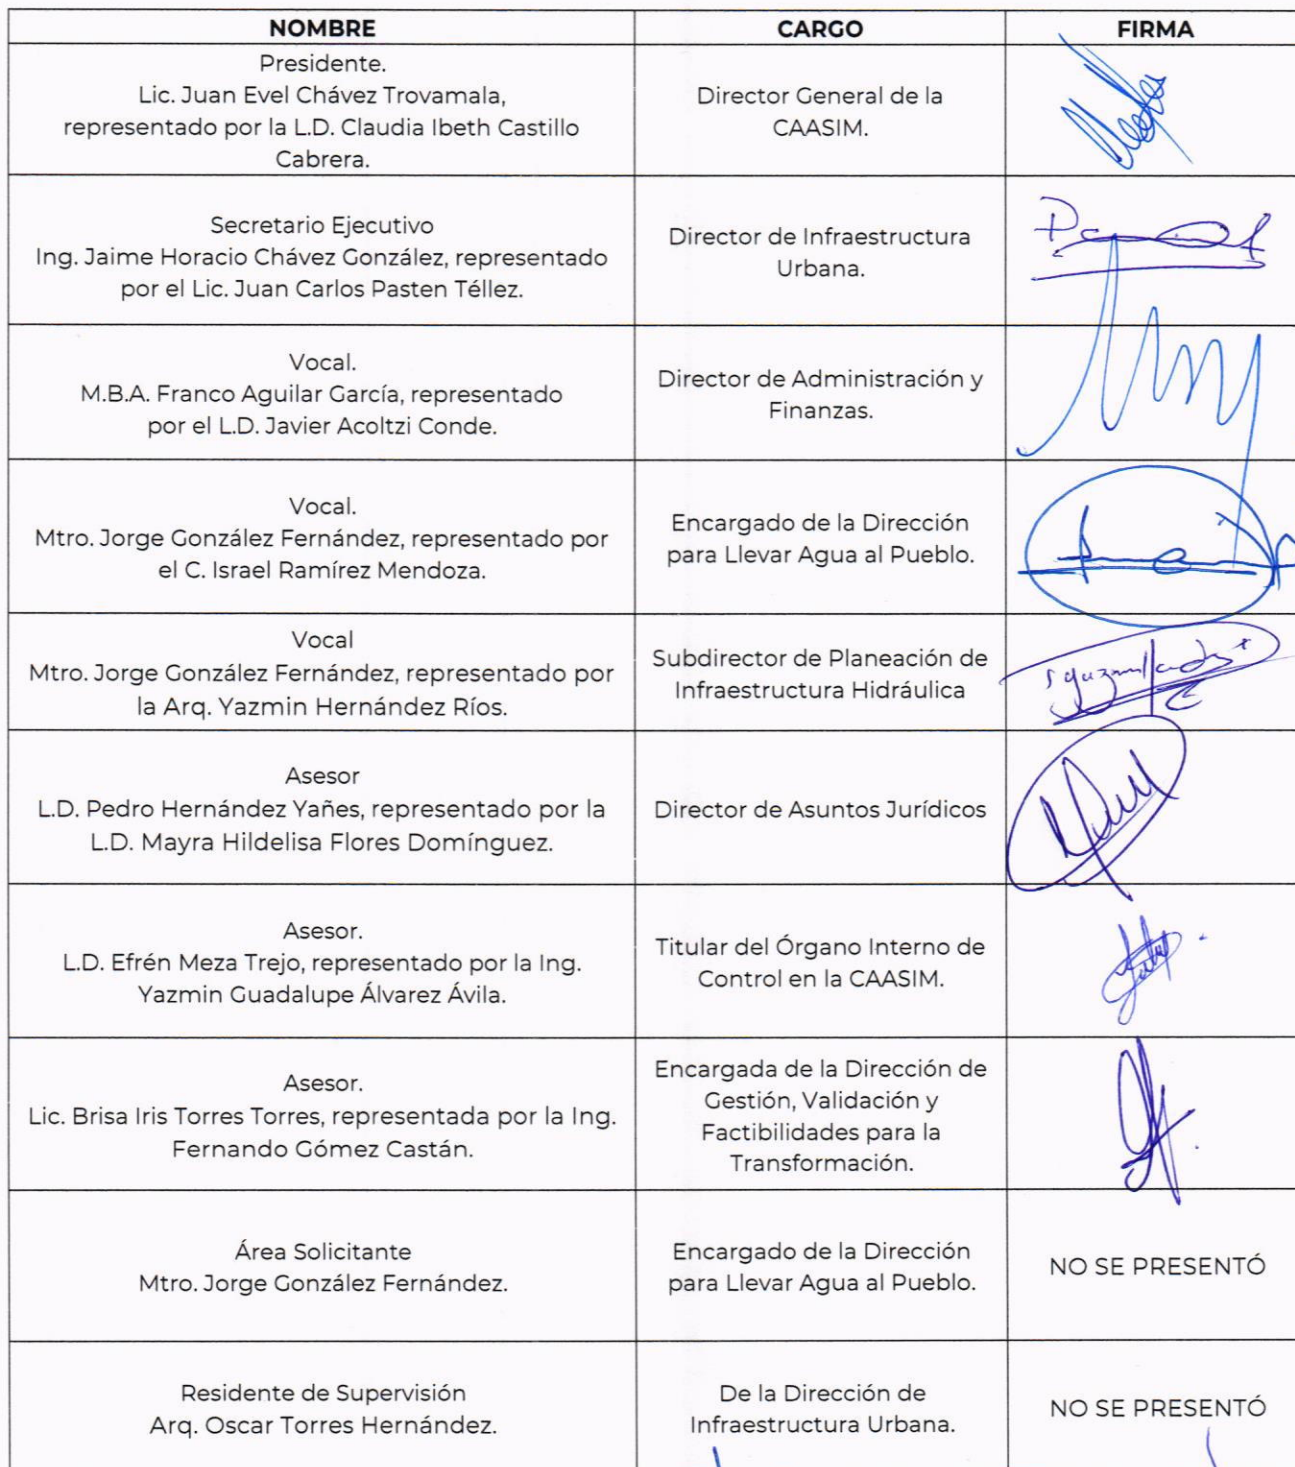 NOMBRE CARGO FIRMA
Presidente.
Lic. Juan Evel Chávez Trovamala,
representado por la L.D. Claudia Ibeth Castillo
Cabrera.
Director General de la
CAASIM.
Secretario Ejecutivo
Ing. Jaime Horacio Chávez González, representado
por el Lic. Juan Carlos Pasten Téllez.
Director de Infraestructura
Urbana.
Vocal.
M.B.A. Franco Aguilar García, representado
por el L.D. Javier Acoltzi Conde.
Director de Administración y
Finanzas.
Vocal.
Mtro. Jorge González Fernández, representado por
el C. Israel Ramírez Mendoza.
Encargado de la Dirección
para Llevar Agua al Pueblo.
Vocal
Mtro. Jorge González Fernández, representado por
la Arq. Yazmin Hernández Ríos.
Subdirector de Planeación de
Infraestructura Hidráulica
Asesor
L.D. Pedro Hernández Yañes, representado por la
L.D. Mayra Hildelisa Flores Domínguez.
Director de Asuntos Jurídicos
Asesor.
L.D. Efrén Meza Trejo, representado por la Ing.
Yazmin Guadalupe Álvarez Ávila.
Titular del Órgano Interno de
Control en la CAASIM.
Asesor.
Lic. Brisa Iris Torres Torres, representada por la Ing.
Fernando Gómez Castán.
Encargada de la Dirección de
Gestión, Validación y
Factibilidades para la
Transformación.
Área Solicitante
Mtro. Jorge González Fernández.
Encargado de la Dirección
para Llevar Agua al Pueblo.
NO SE PRESENTÓ
Residente de Supervisión
Arq. Oscar Torres Hernández.
De la Dirección de
Infraestructura Urbana.
NO SE PRESENTÓ